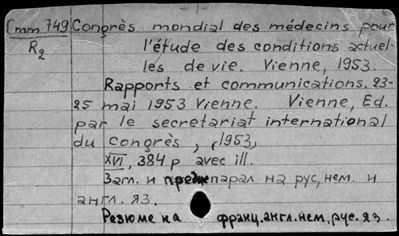 Cmm 749 Congrès mondial des médecins pour
R2 l'étude des conditions actuel-
les de vie. Vienne, 1953.
Rapports et communications. 23-
25 mai 1953 Vienne. Vienne, Ed.
par le secretariat international
du Congrès, [1953]
XVI, 384 p avec ill.
Загл. и парал. на рус, нем. и
англ. яз.
Резюме на франц. англ. нем. рус. яз.